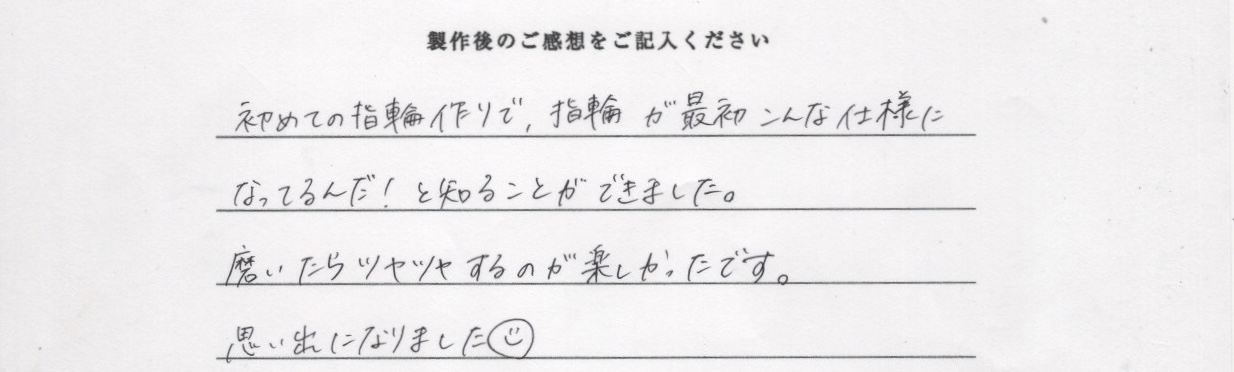 製作後のご感想をご記入ください
初めての指輪作りで、指輪が最初こんな仕様に
なってるんだ！と知ることができました。
磨いたらツヤツヤするのが楽しかったです。
思い出になりました☺